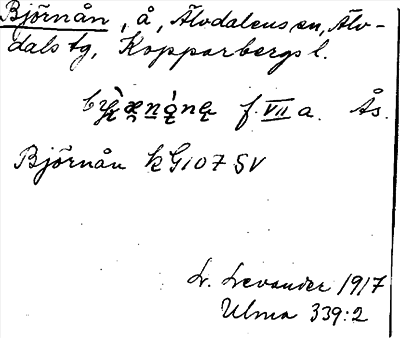 Björnån, å, Älvdalens sn, Älv-
dals tg, Kopparbergs l.
f. VII a. Ås.
Björnån k G107 SV
L. Levander 1917
Ulma 339:2